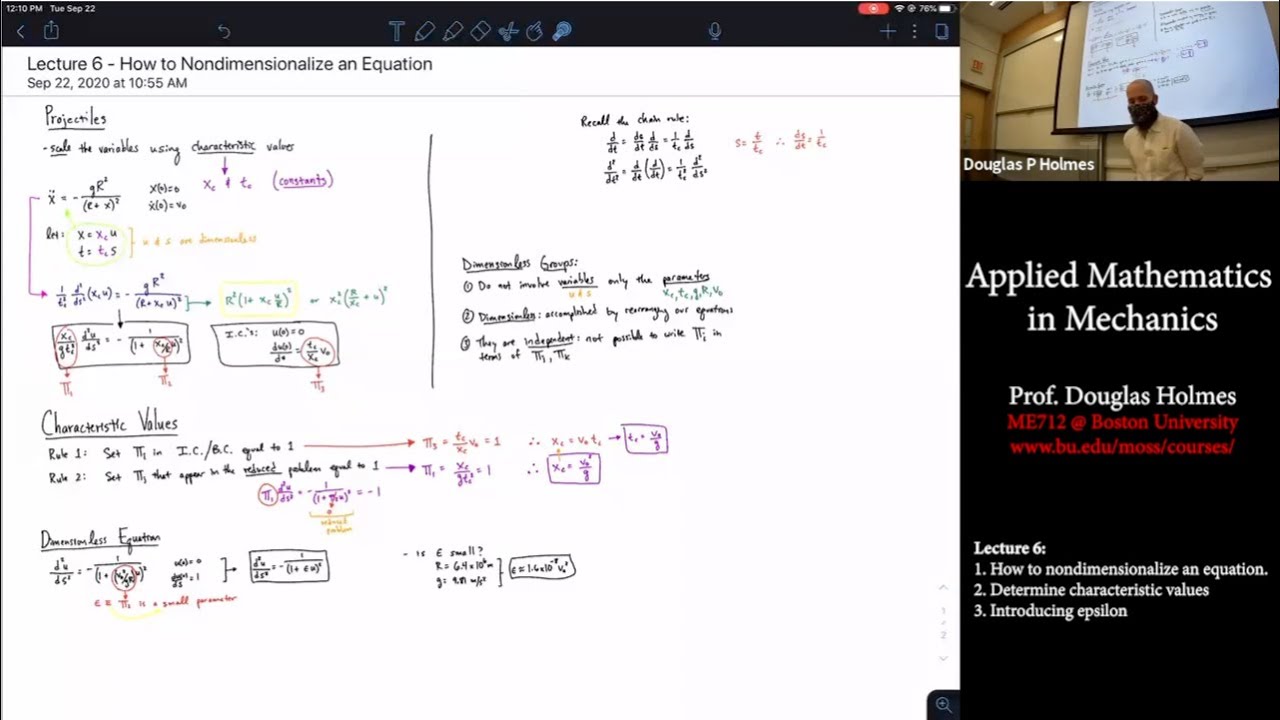 12:10 PM Tue Sep 22
76%
Lecture 6 - How to Nondimensionalize an Equation
Sep 22, 2020 at 10:55 AM
Projectiles
- scale the variables using characteristic values
x_c & t_c (constants)
ẍ = - gR²/(R + x)² x(0)=0
ẋ(0)=v₀
let: x = x_c u
t = t_c s
u & s are dimensionless
1/t_c² d²/ds² (x_c u) = - gR²/(R + x_c u)² → R²(1 + x_c u/R)² or x_c²(R/x_c + u)²
x_c/(g t_c²) d²u/ds² = - 1/(1 + x_c/R u)²
I.C.'s: u(0)=0
du(0)/ds = t_c/x_c v₀
Π₁ Π₂ Π₃
Recall the chain rule:
d/dt = ds/dt d/ds = 1/t_c d/ds
s = t/t_c ∴ ds/dt = 1/t_c
d²/dt² = d/dt (d/dt) = 1/t_c² d²/ds²
Dimensionless Groups:
① Do not involve variables only the parameters
u & s x_c, t_c, g, R, v₀
② Dimensionless: accomplished by rearranging our equations
③ They are independent: not possible to write Π_i in
terms of Π_j, Π_k
Characteristic Values
Rule 1: Set Π_i in I.C./B.C. equal to 1 → Π₃ = t_c/x_c v₀ = 1 ∴ x_c = v₀ t_c → t_c = v₀/g
Rule 2: Set Π_i that appear in the reduced problem equal to 1 → Π₁ = x_c/(g t_c²) = 1 ∴ x_c = v₀²/g
reduced
problem
Dimensionless Equation
d²u/ds² = - 1/(1 + (v₀²/gR) u)² u(0)=0
du(0)/ds = 1
→ d²u/ds² = - 1/(1 + εu)²
ε = Π₂ is a small parameter
- is ε small?
R = 6.4 x 10⁶ m
g = 9.81 m/s²
ε ≈ 1.6x10⁻⁸ v₀²
1
2
Douglas P Holmes
Applied Mathematics
in Mechanics
Prof. Douglas Holmes
ME712 @ Boston University
www.bu.edu/moss/courses/
Lecture 6:
1. How to nondimensionalize an equation.
2. Determine characteristic values
3. Introducing epsilon